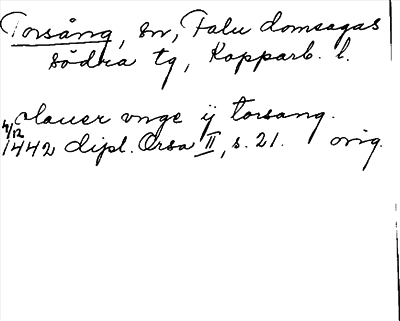 Torsång, sn, Falu domsagas
södra tg, Kopparb. l.
Olauer vnge ij torsang.
4/12
1442 dipl. Orsa II, s. 21. orig.